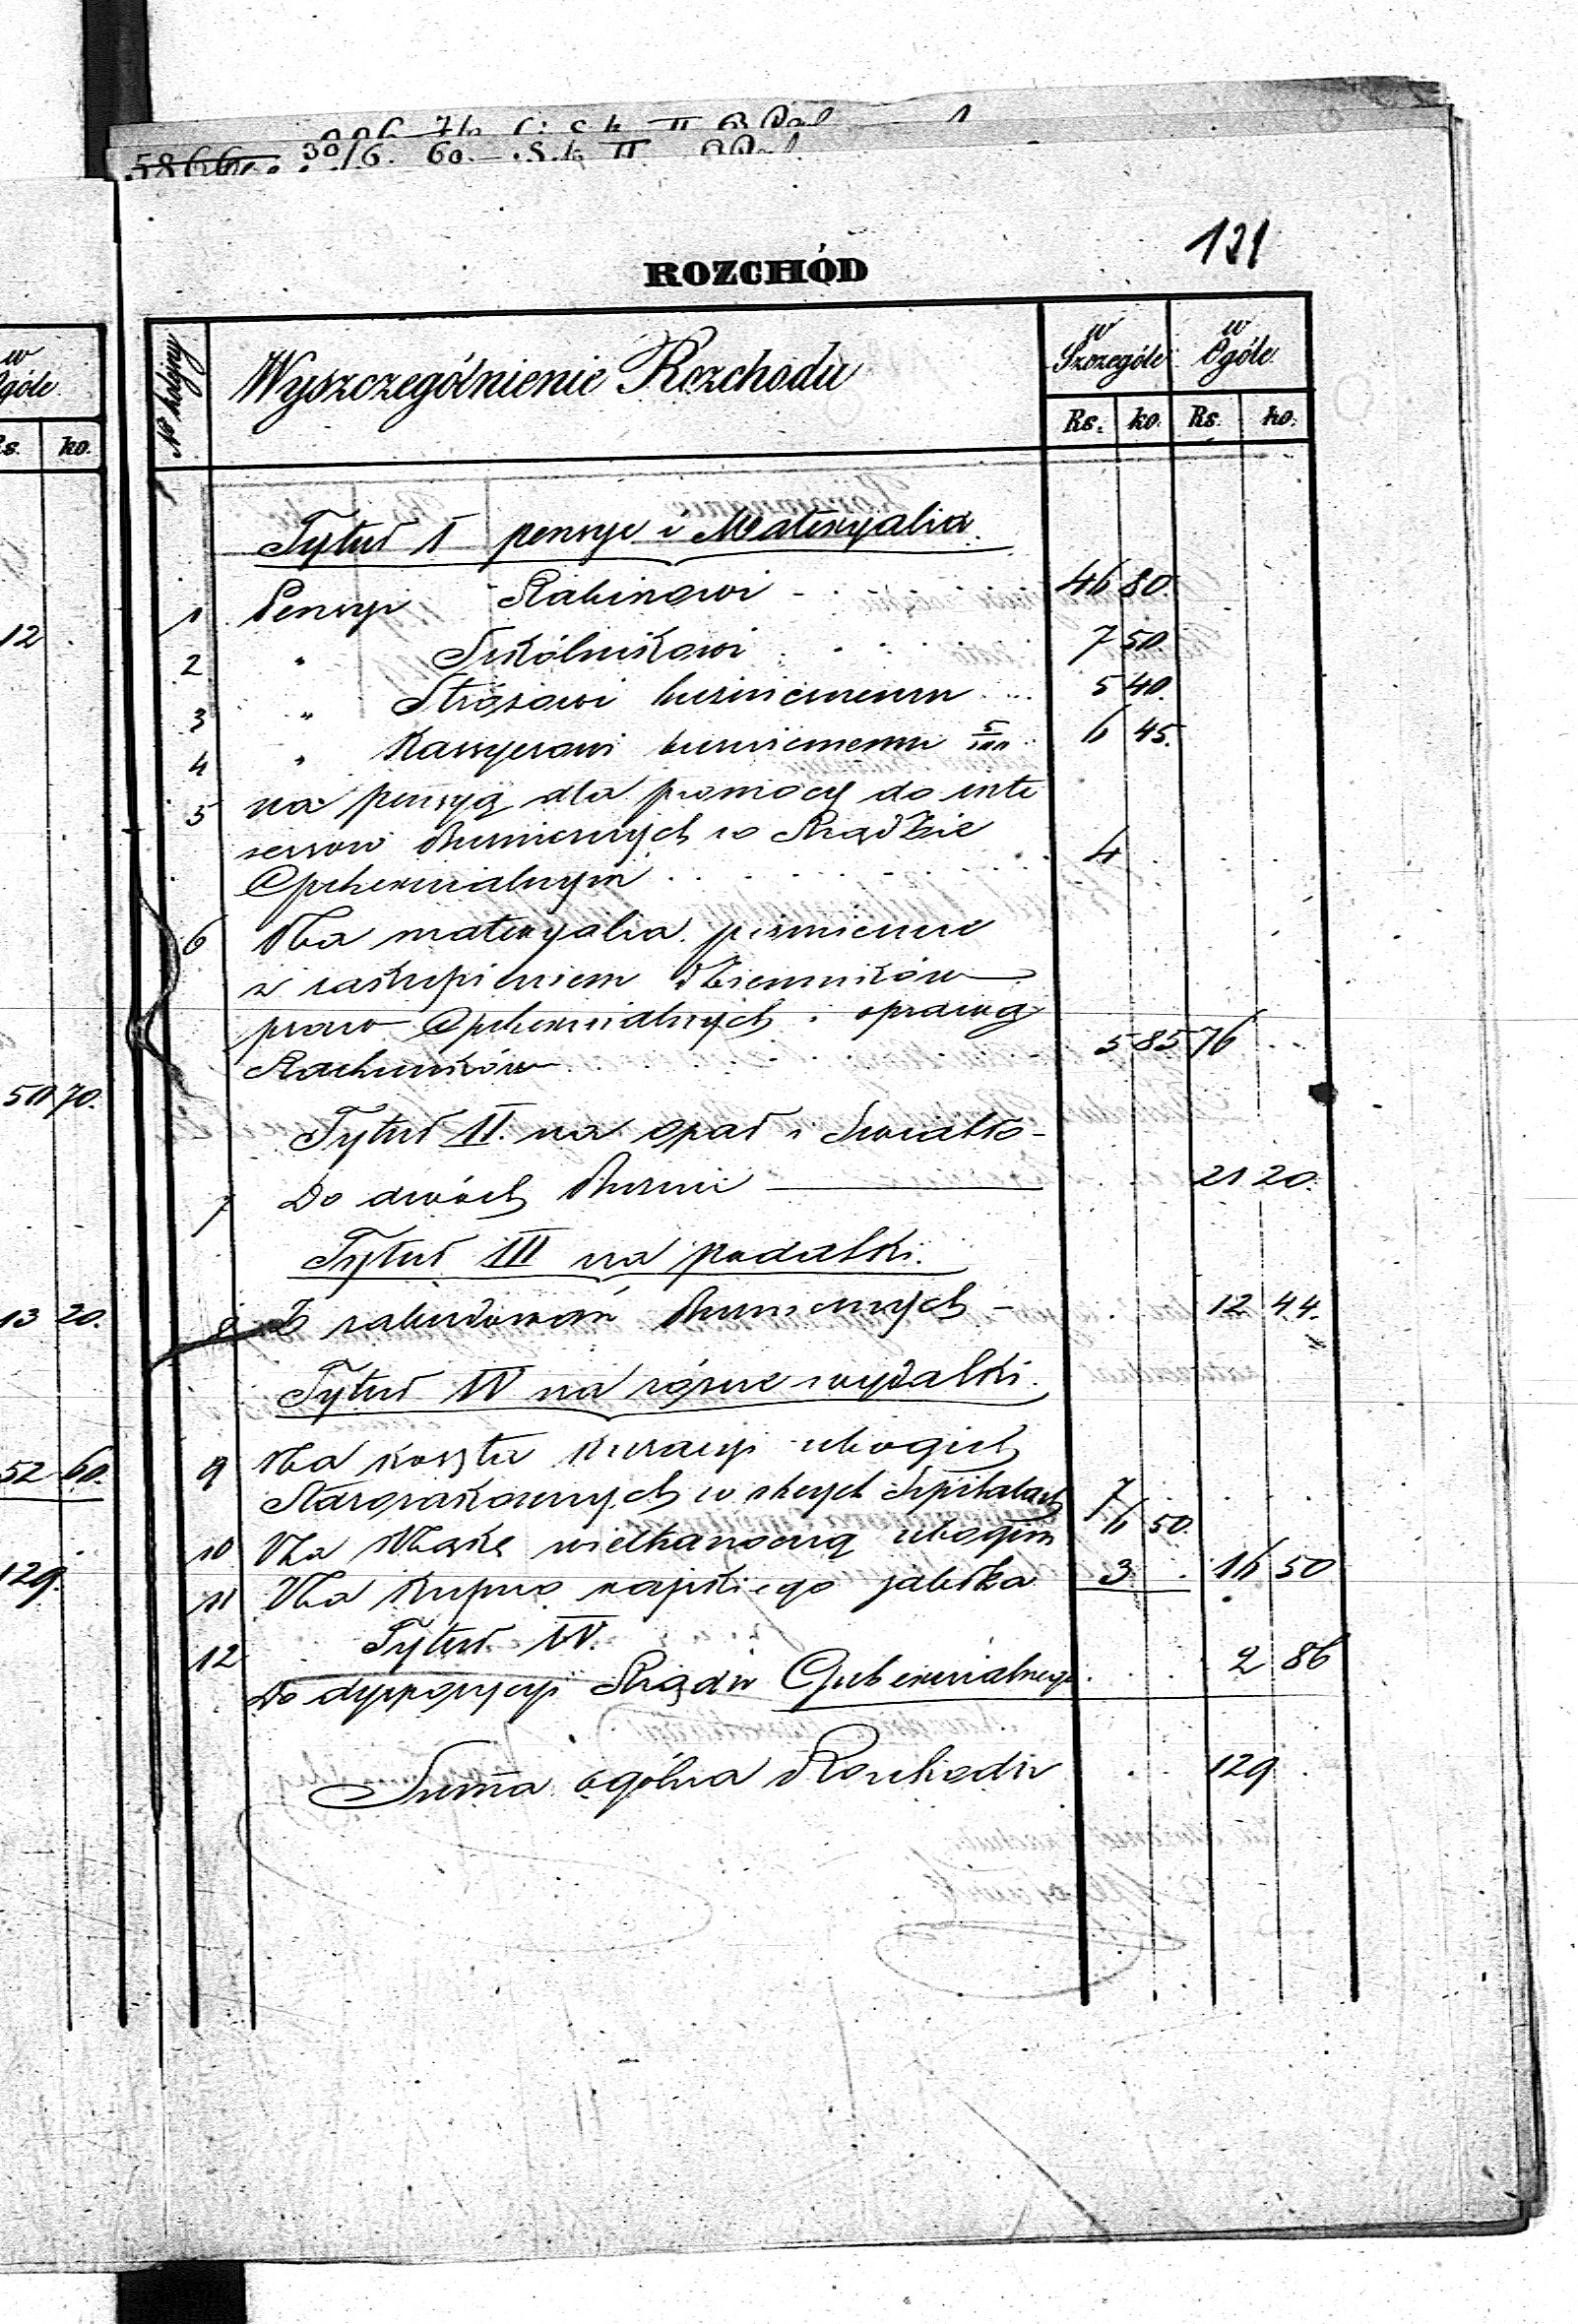 131
ROZCHÓD
w
Ogóle
Rs. ko.
№ kolejny
Wyszczególnienie Rozchodu
w
Szczególe
w
Ogóle
Rs. ko. Rs. ko.
Tytuł I pensye i Materyalia
1 Pensyi Rabinowi 46 80.
2 " Szkólnikowi 7 50.
3 " Stróżowi bużnicznemu 5 40.
4 " Kassyerowi bużnicznemu 5/100 6 45.
5 na pensyą dla pomocy do inte
ressow Bużnicznych w Rządzie
Gubernialnym 4
6 Na materyalia piśmienne
z zakupieniem Dzienników
praw Gubernialnych i oprawą
Rachunków 5 85 76
Tytuł II. na opał i Swiatło
7 Do dwóch Bużni 21 20.
Tytuł III na podatki.
8 Z zabudowań Bużnicznych 12 44.
Tytuł IV na różne wydatki.
9 Na koszta kuracyi ubogich
Starozakonnych w obcych Szpitalach 7
10 Na Mąkę wielkanocną ubogim 6 50.
11 Na kupno rajskiego jabłka 3 16 50
12 Tytuł V.
Do dyspozycyi Rządu Gubernialnego 2 86
Summa ogólna Rozchodu 129
12
50 70.
13 20.
52 60.
129.